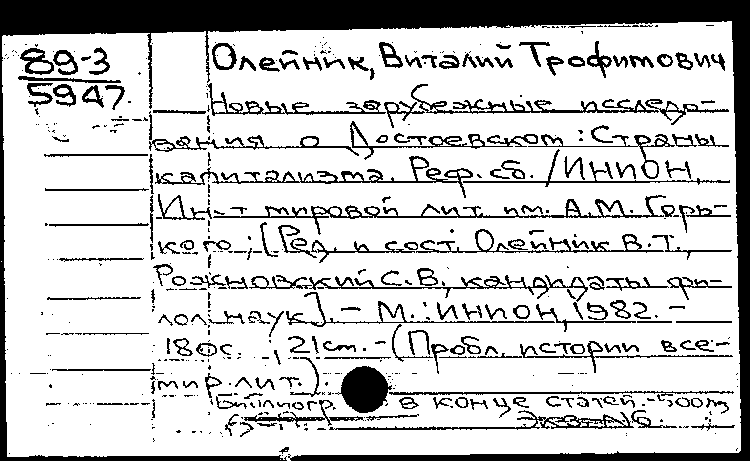 89-3
5947
Олейник, Виталий Трофимович
Новые зарубежные исследо-
вания о Достоевском : Страны
капитализма. Реф. сб. / ИНИОН,
Ин-т мировой лит. им. А.М. Горь-
кого ; [Ред. и сост. Олейник В.Т.,
Рожновский С.В., кандидаты фи-
лол. наук]. - М. : ИНИОН, 1982. -
180с. ; 21см. - (Пробл. истории все-
мир. лит.).
Библиогр. в конце статей. - 500